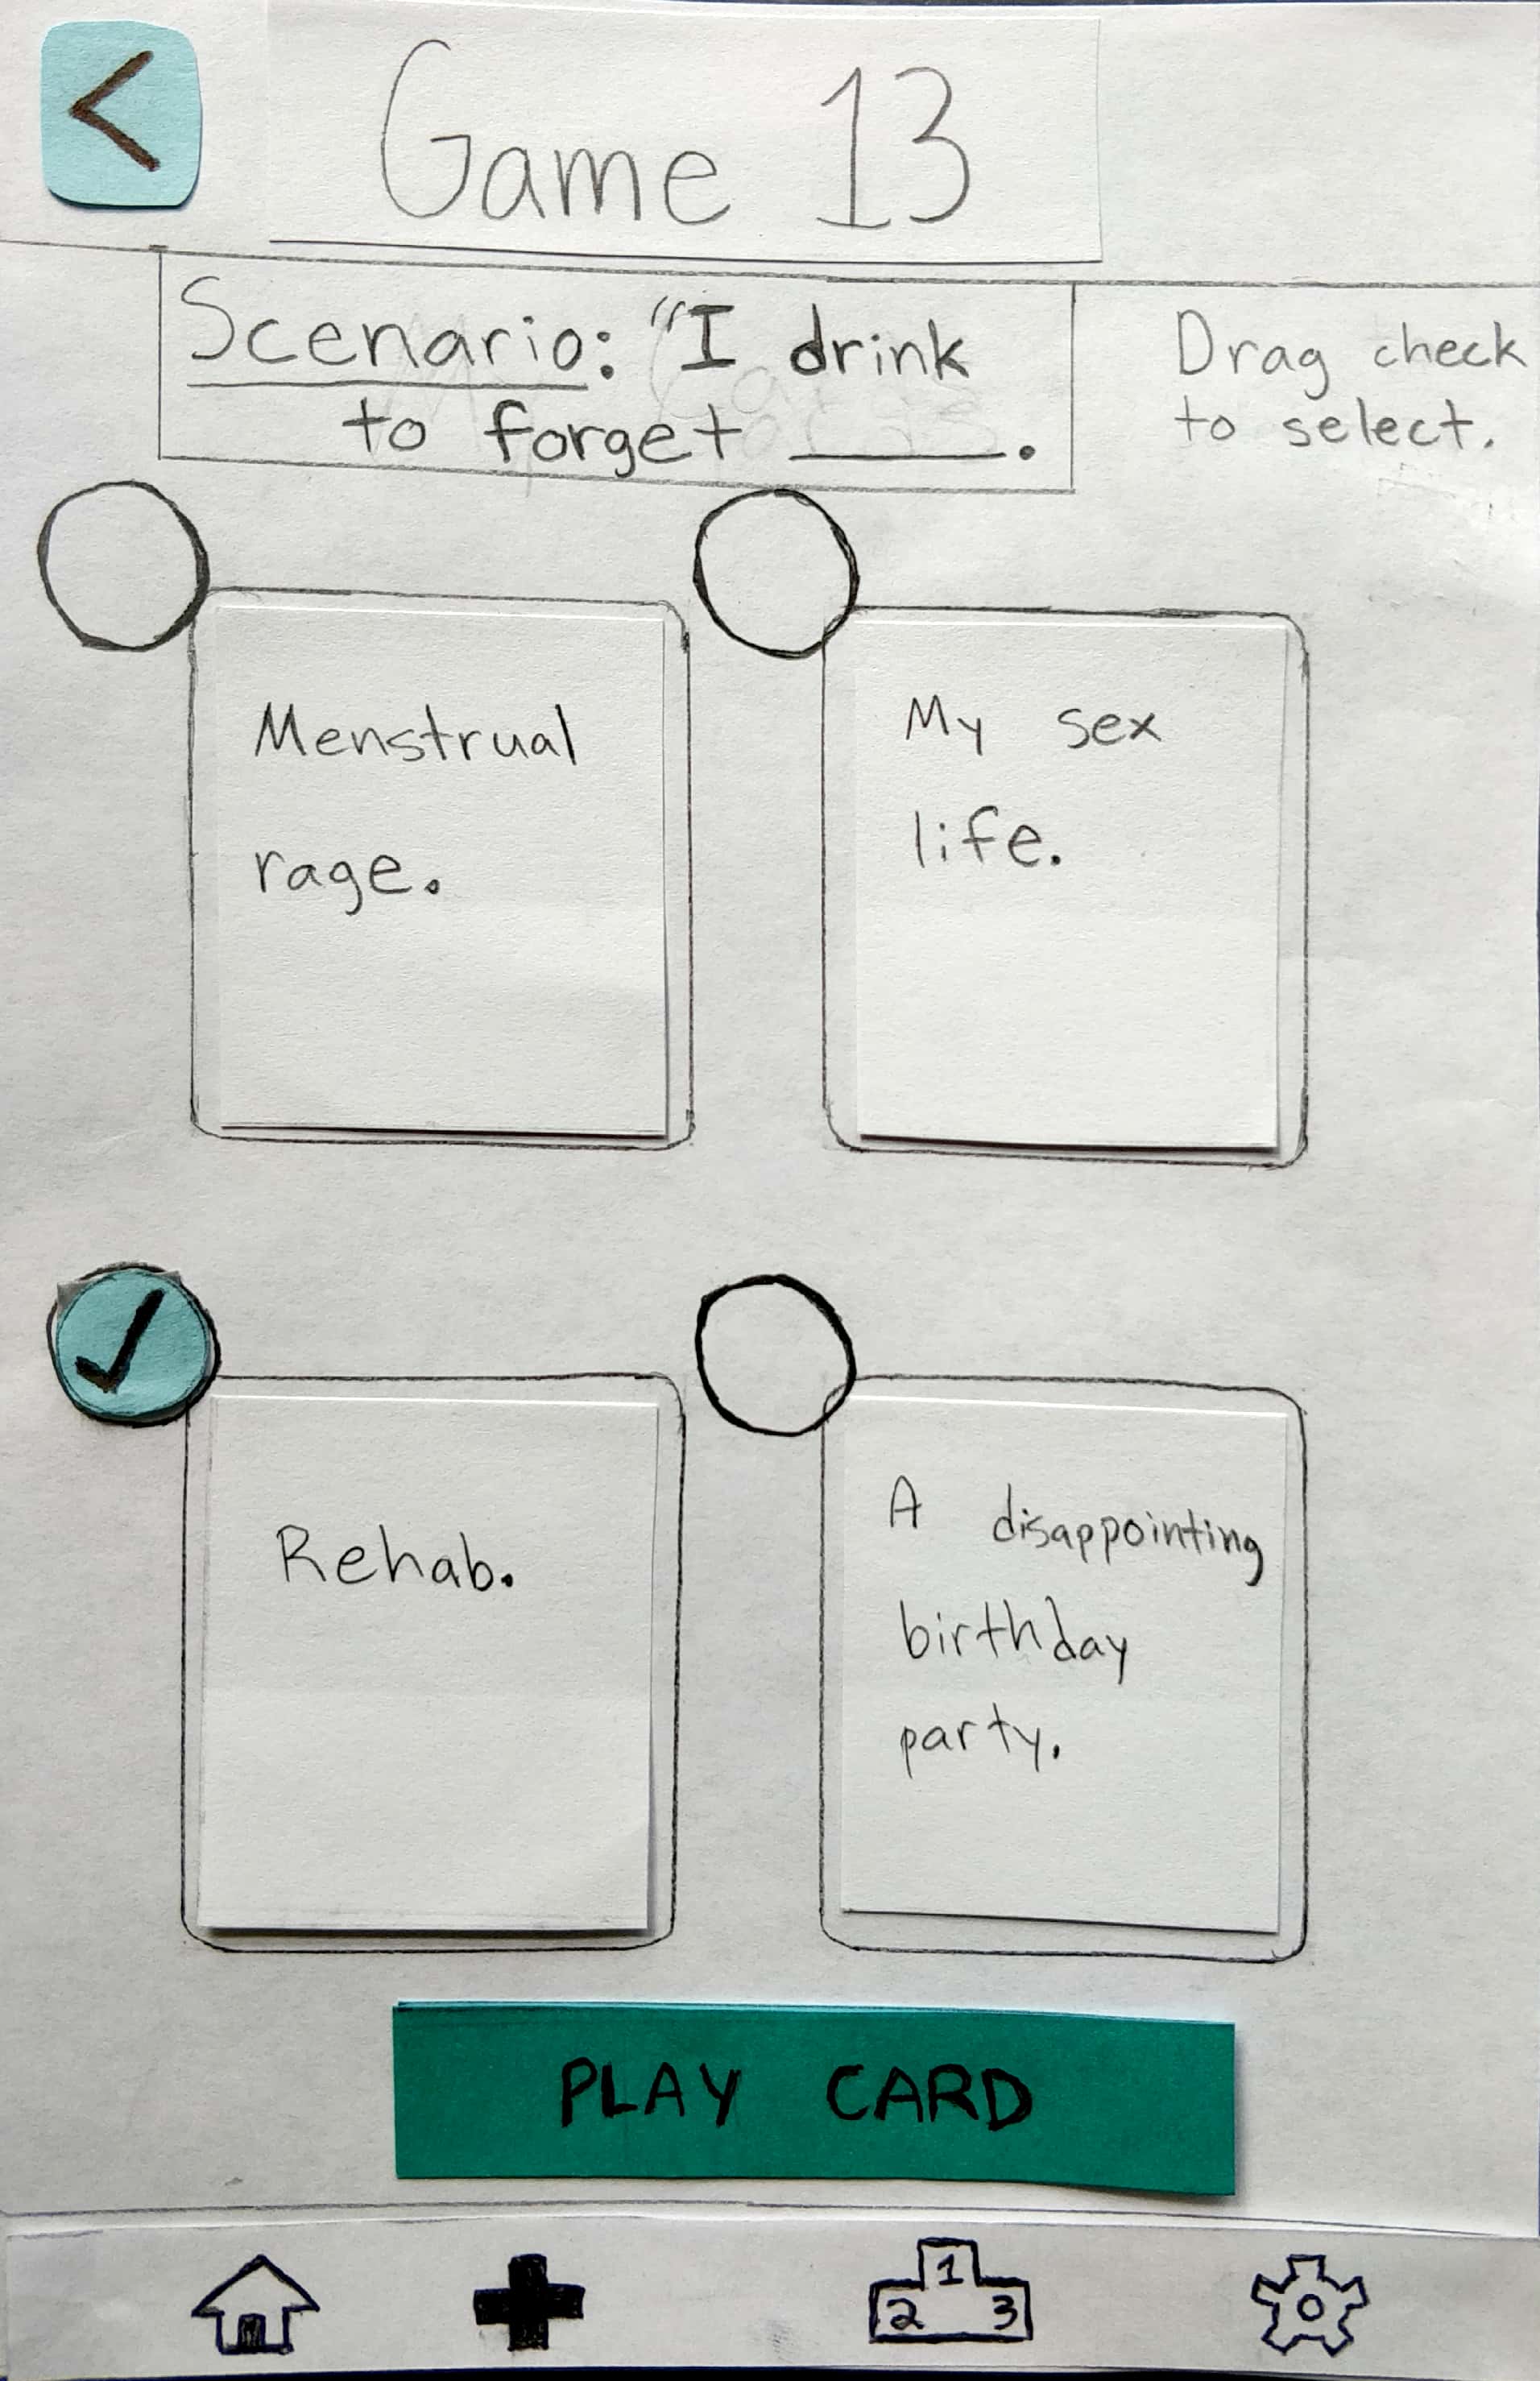 <
Game 13
Scenario: "I drink
to forget ______.
Drag check
to select.
Menstrual
rage.
My sex
life.
Rehab.
A disappointing
birthday
party.
PLAY CARD
1
2 3